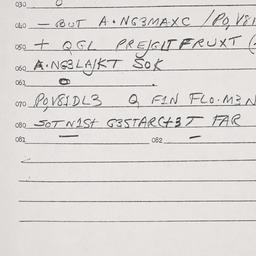 030
040 — BUT A·NG3MAXC /PO,V81
050 + QGL PREJGLTFRUXT (
060 A·NG3LAJKT SOK
061
070 PO,V81DL3 Q F1N FLO·M3N
080 SOT N1St G3STARCt3T FAR
081 082